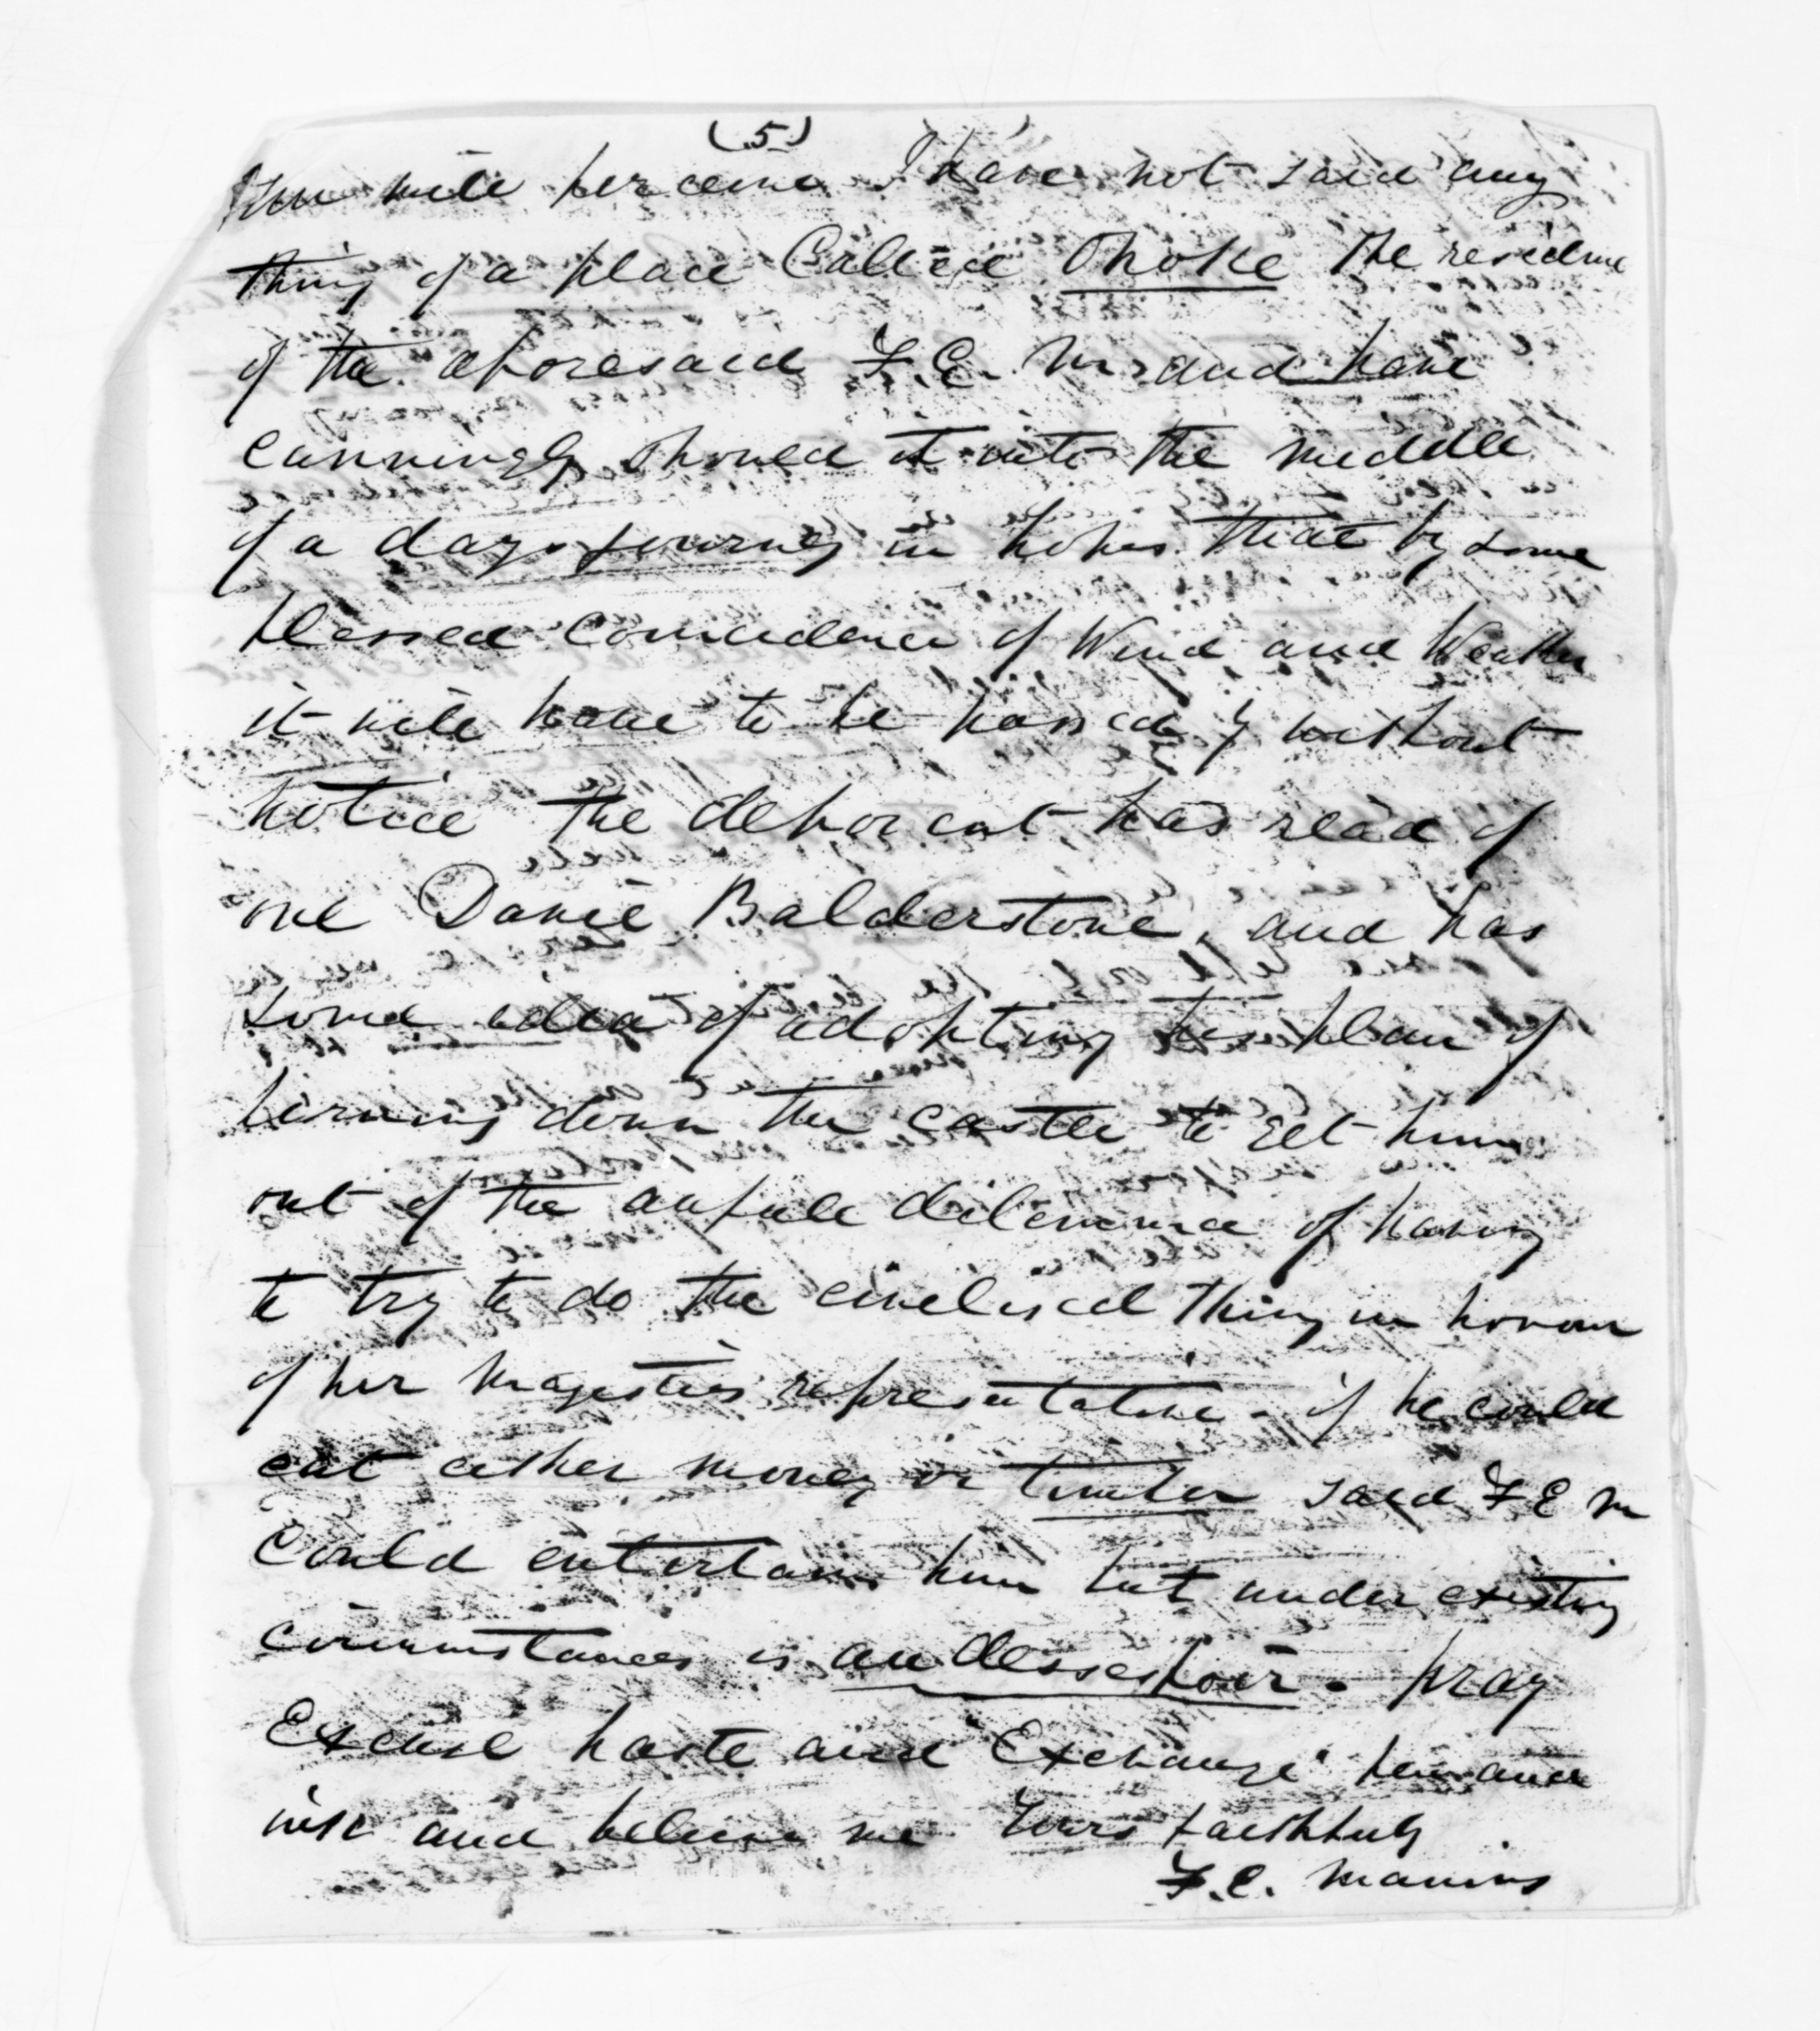 (5)
You will perceive I have not said any
thing of a place Called Onoke the residence
of the aforesaid F.E. M. and have
cunningly shoved it into the middle
of a days journey in hopes that by some
blessed coincidence of Wind and Weather
it will have to be passed by without
notice the
has read of
one
Balderstone, and has
some idea of adopting his plan of
burning down the castle to get him
out of the awful dilemma of having
to try to do the civilised thing in honour
of her Majesties representative - if he could
eat either money or timber said F E M
Could entertain him but under existing
circumstances is au dessespoir. pray
Excuse haste and "Exchange" pen and
ink and believe me Yours faithfully
F.E. Maning